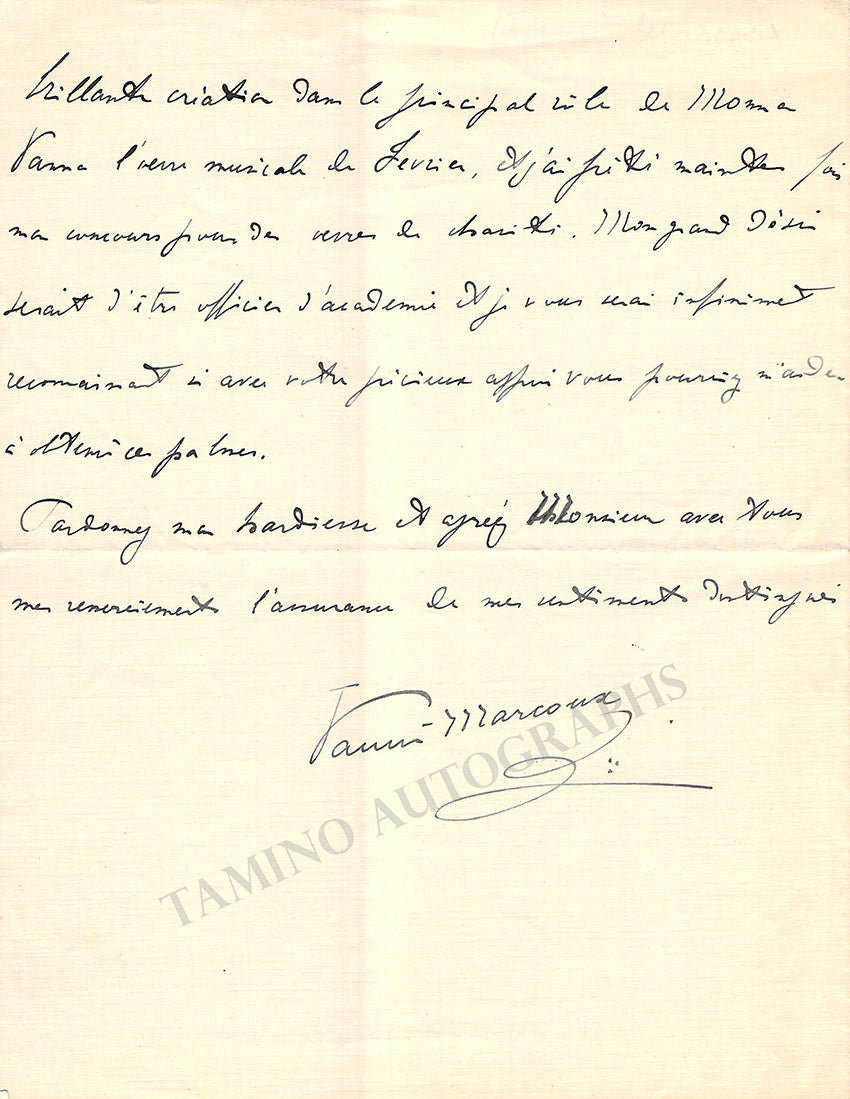 brillante création dans le principal rôle de Monna
Vanna l'œuvre musicale de Février, et j'ai prêté maintes fois
mon concours pour des œuvres de charité. Mon grand désir
serait d'être officier d'académie et je vous serai infiniment
reconnaissant si avec votre précieux appui vous pourriez m'aider
à obtenir ces palmes.
Pardonnez ma hardiesse et agréez Monsieur avec tous
mes remerciements l'assurance de mes sentiments distingués
Vanni-Marcoux
TAMINO AUTOGRAPHS